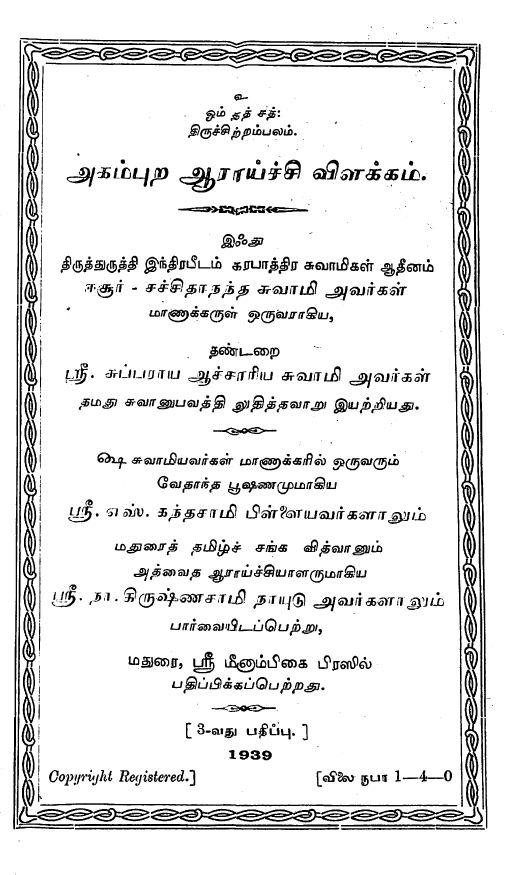 உ
ஓம் தத் சத்:
திருச்சிற்றம்பலம்.
அகம்புற ஆராய்ச்சி விளக்கம்.
இஃது
திருத்துருத்தி இந்திரபீடம் கரபாத்திர சுவாமிகள் ஆதீனம்
ஈசூர் - சச்சிதாநந்த சுவாமி அவர்கள்
மாணாக்கருள் ஒருவராகிய,
தண்டறை
ஸ்ரீ. சுப்பராய ஆச்சாரிய சுவாமி அவர்கள்
தமது சுவானுபவத்தி லுதித்தவாறு இயற்றியது.
௸ சுவாமியவர்கள் மாணாக்கரில் ஒருவரும்
வேதாந்த பூஷணமுமாகிய
ஸ்ரீ. எஸ். கந்தசாமி பிள்ளையவர்களாலும்
மதுரைத் தமிழ்ச் சங்க வித்வானும்
அத்வைத ஆராய்ச்சியாளருமாகிய
ஸ்ரீ. நா. கிருஷ்ணசாமி நாயுடு அவர்களாலும்
பார்வையிடப்பெற்று,
மதுரை, ஸ்ரீ மீனாம்பிகை பிரஸில்
பதிப்பிக்கப்பெற்றது.
[ 3-வது பதிப்பு. ]
1939
Copyright Registered.]
[விலை ரூபா 1—4—0